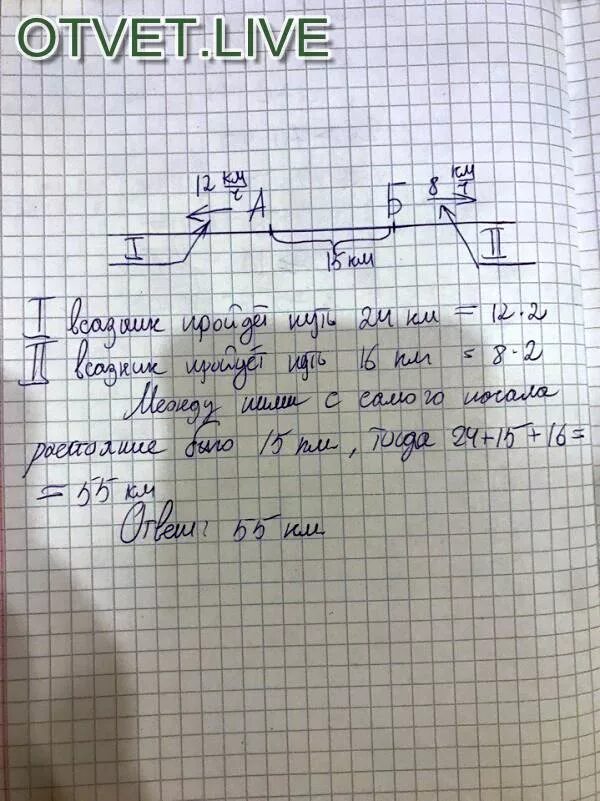 OTVET.LIVE
12 км/ч А Б 8 км/ч
I 15 км II
I всадник пройдёт путь 24 км = 12·2
II всадник пройдёт путь 16 км = 8·2
Между ними с самого начала
расстояние было 15 км, тогда 24+15+16=
= 55 км
Ответ: 55 км